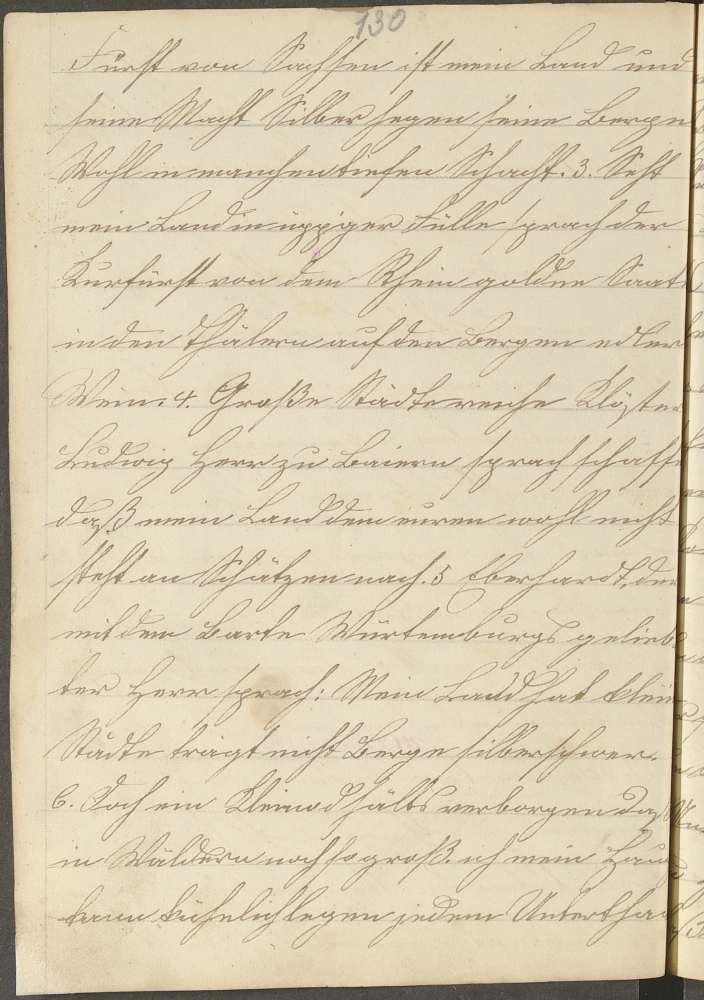 130
Fürst von Sachsen ist mein Land und
seine Macht Silber hegen seine Berge
Wohl in manchen tiefen Schacht. 3. Seht
mein Land in üppiger Fülle sprach der
Kurfürst von dem Rhein goldne Saat
in den Thälern auf den Bergen edler
Wein. 4. Große Städte reiche Klöster
Ludwig Herr zu Baiern sprach schaff
daß mein Land dem euren wohl nicht
steht an Schätzen nach. 5 Eberhardt, der
mit dem Barte Würtemburgs gelieb
ter Herr sprach: Mein Land hat klein
Städte trägt nicht Berge silberschwer.
6. Doch ein Kleinod hälts verborgen daß
in Wäldern noch so groß ich mein Haup
kann kühnlich legen jedem Unterthan